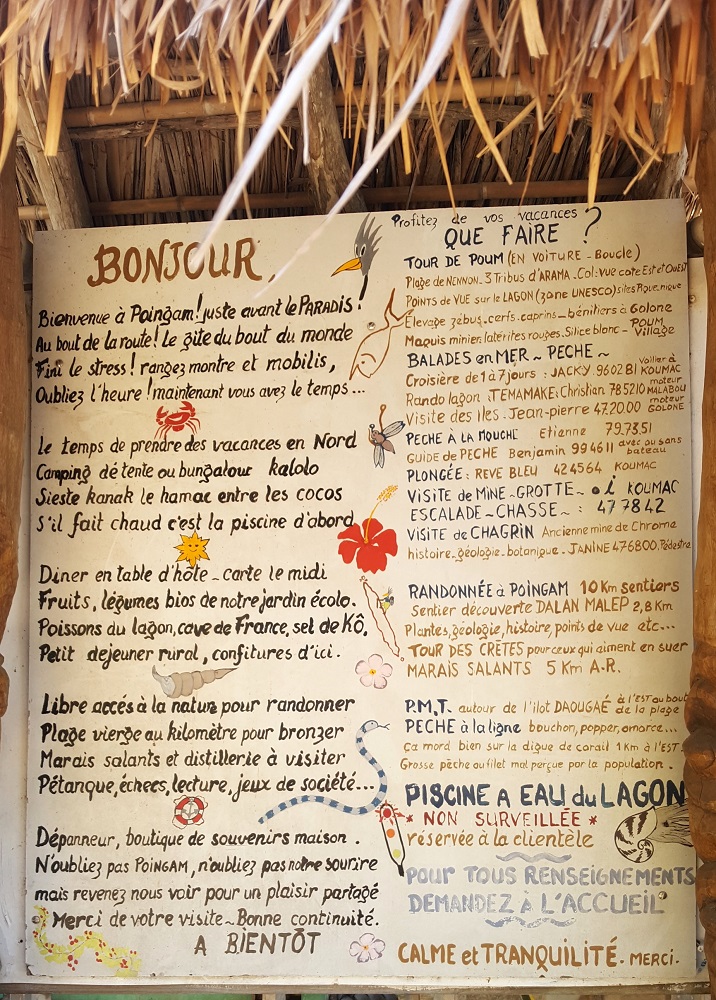 BONJOUR,
Bienvenue à Poingam! juste avant le PARADIS!
Au bout de la route! Le gîte du bout du monde
Fini le stress! rangez montre et mobilis,
Oubliez l'heure! maintenant vous avez le temps...
Le temps de prendre des vacances en Nord
Camping détente ou bungalow kalolo
Sieste kanak le hamac entre les cocos
S'il fait chaud c'est la piscine d'abord
Diner en table d'hôte - carte le midi
Fruits, légumes bios de notre jardin écolo.
Poissons du lagon, cave de France, sel de Kô,
Petit dejeuner rural, confitures d'ici.
Libre accés à la nature pour randonner
Plage vierge au kilomètre pour bronzer
Marais salants et distillerie à visiter
Pétanque, échecs, lecture, jeux de société...
Dépanneur, boutique de souvenirs maison.
N'oubliez pas POINGAM, n'oubliez pas notre sourire
mais revenez nous voir pour un plaisir partagé
Merci de votre visite ~ Bonne continuité.
A BIENTÔT
Profitez de vos vacances
QUE FAIRE ?
TOUR DE POUM (EN VOITURE - Boucle)
Plage de NENNON. 3 Tribus d'ARAMA. Col: vue cote Est et OUEST
POINTS de VUE sur le LAGON (zone UNESCO) sites Pique nique
Elevage zébus. cerfs. caprins - bénitiers à Golone
Maquis minier. latérites rouges. Silice blanc - POUM Village
BALADES en MER ~ PECHE ~
Croisière de 1 à 7 jours : JACKY. 96 02 81 Voilier à KOUMAC
Rando lagon : TEMAMAKE: Christian 78 52 10 moteur MALABOU
Visite des Iles. Jean-pierre 47.20.00 moteur GOLONE
PECHE À LA MOUCHE Etienne 79.73.51
GUIDE de PECHE Benjamin 99 46 11 avec ou sans bateau
PLONGÉE : REVE BLEU 42 45 64 KOUMAC
VISITE de MINE ~ GROTTE ~ KOUMAC
ESCALADE ~ CHASSE ~ : 47 78 42
VISITE de CHAGRIN Ancienne mine de Chrome
histoire. géologie. botanique. JANINE 476800. Pédestre
RANDONNÉE à POINGAM 10 Km sentiers
Sentier découverte DALAN MALEP 2,8 Km
Plantes, géologie, histoire, points de vue etc...
TOUR DES CRÊTES pour ceux qui aiment en suer
MARAIS SALANTS 5 Km A.R.
P.M.T. autour de l'ilot DAOUGAÉ à l'EST au bout de la plage
PECHE à la ligne bouchon, popper, amorce...
Ça mord bien sur la digue de corail 1 Km à l'EST.
Grosse pèche au filet mal perçue par la population.
PISCINE A EAU du LAGON
* NON SURVEILLÉE *
réservée à la clientèle
POUR TOUS RENSEIGNEMENTS
DEMANDEZ à L'ACCUEIL
CALME et TRANQUILITÉ. MERCI.